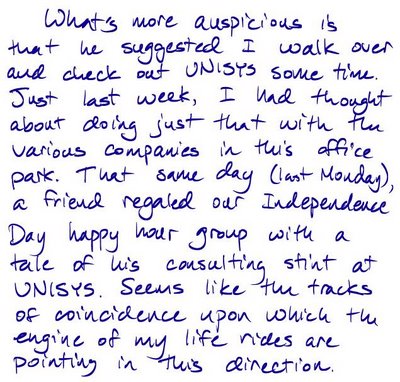 What's more auspicious is
that he suggested I walk over
and check out UNISYS some time.
Just last week, I had thought
about doing just that with the
various companies in this office
park. That same day (last Monday),
a friend regaled our Independence
Day happy hour group with a
tale of his consulting stint at
UNISYS. Seems like the tracks
of coincidence upon which the
engine of my life rides are
pointing in this direction.